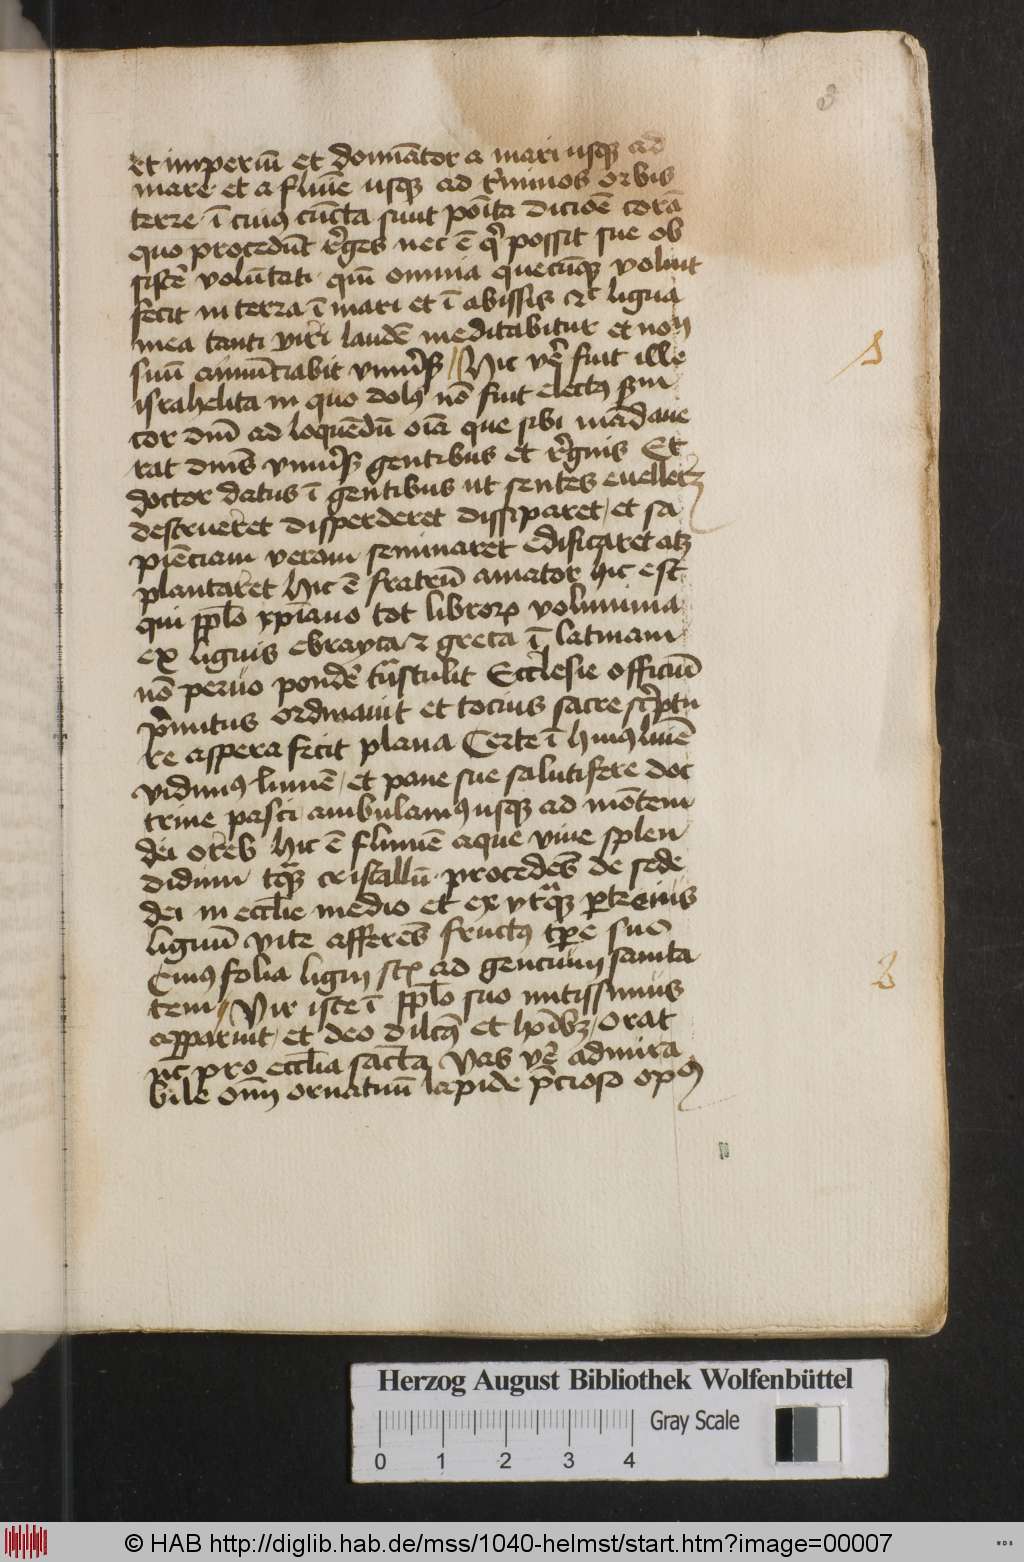 3
et imperiū et domīator a mari usqꝫ ad
mare et a flumīe usqꝫ ad t̓minos orbis
terre ī cuiꝰ cūcta sunt poīta dicioē corā
quo procedūt r̓ges nec ē q̓ possit sue ob
sistē volūtati qm̄ omnia quecūqꝫ voluit
fecit in terra ī mari et ī abissis ⁊c̄ ligua
mea tanti viri laudē meditabitur et non
suū annūciabit vniu̓s // Hic ve᷑ fuit ille
israhelita in quo dolꝰ nō fuit electꝰ s̄m
cor dm̄ ad loquēdū oīa que sibi mādaue
rat dn̄s vniu̓s gentibus et r̓gnis Et
doctor datus ī gentibus ut sentes euelleret
destrueret disperderet dissiparet et sa
pīēciam veram seminaret edificaret atꝫ
plantaret Hic ē fratrū amator hic est
qui pp̄lo xp̄iano tot libroꝝ volumina
ex liguis ebrayca ⁊ greca ī latinam
nō peruo pondē trāstulit Ecclesie officiū
p̓mitus ordinauit et tocius sacre sc̓ptu
re aspera fecit plana Certe ī huiꝰ lumē
vidimꝰ lumē et pane sue salutifere doc
trine pasti ambulamꝰ usqꝫ ad mōtem
dei oreb Hic ē flumē aque viue splen
didum tāqꝫ cristallū procedēs de sede
dei in eccl̄ie medio et ex vtᵃqꝫ parte eius
lignū vite afferēs fructꝰ tp̄e suo
Cuiꝰ folia ligni st̄ ad gencium sanita
tem // Vir iste ī pp̄lo suo mitissimus
apparuit et deo dilcūs et hoībꝫ orat
nc̄ pro eccl̄ia sācta Vas ve᷑ admira
bile om̄i ornatum lapide p̓cioso opꝰ
Herzog August Bibliothek Wolfenbüttel
Gray Scale
0 1 2 3 4
© HAB http://diglib.hab.de/mss/1040-helmst/start.htm?image=00007